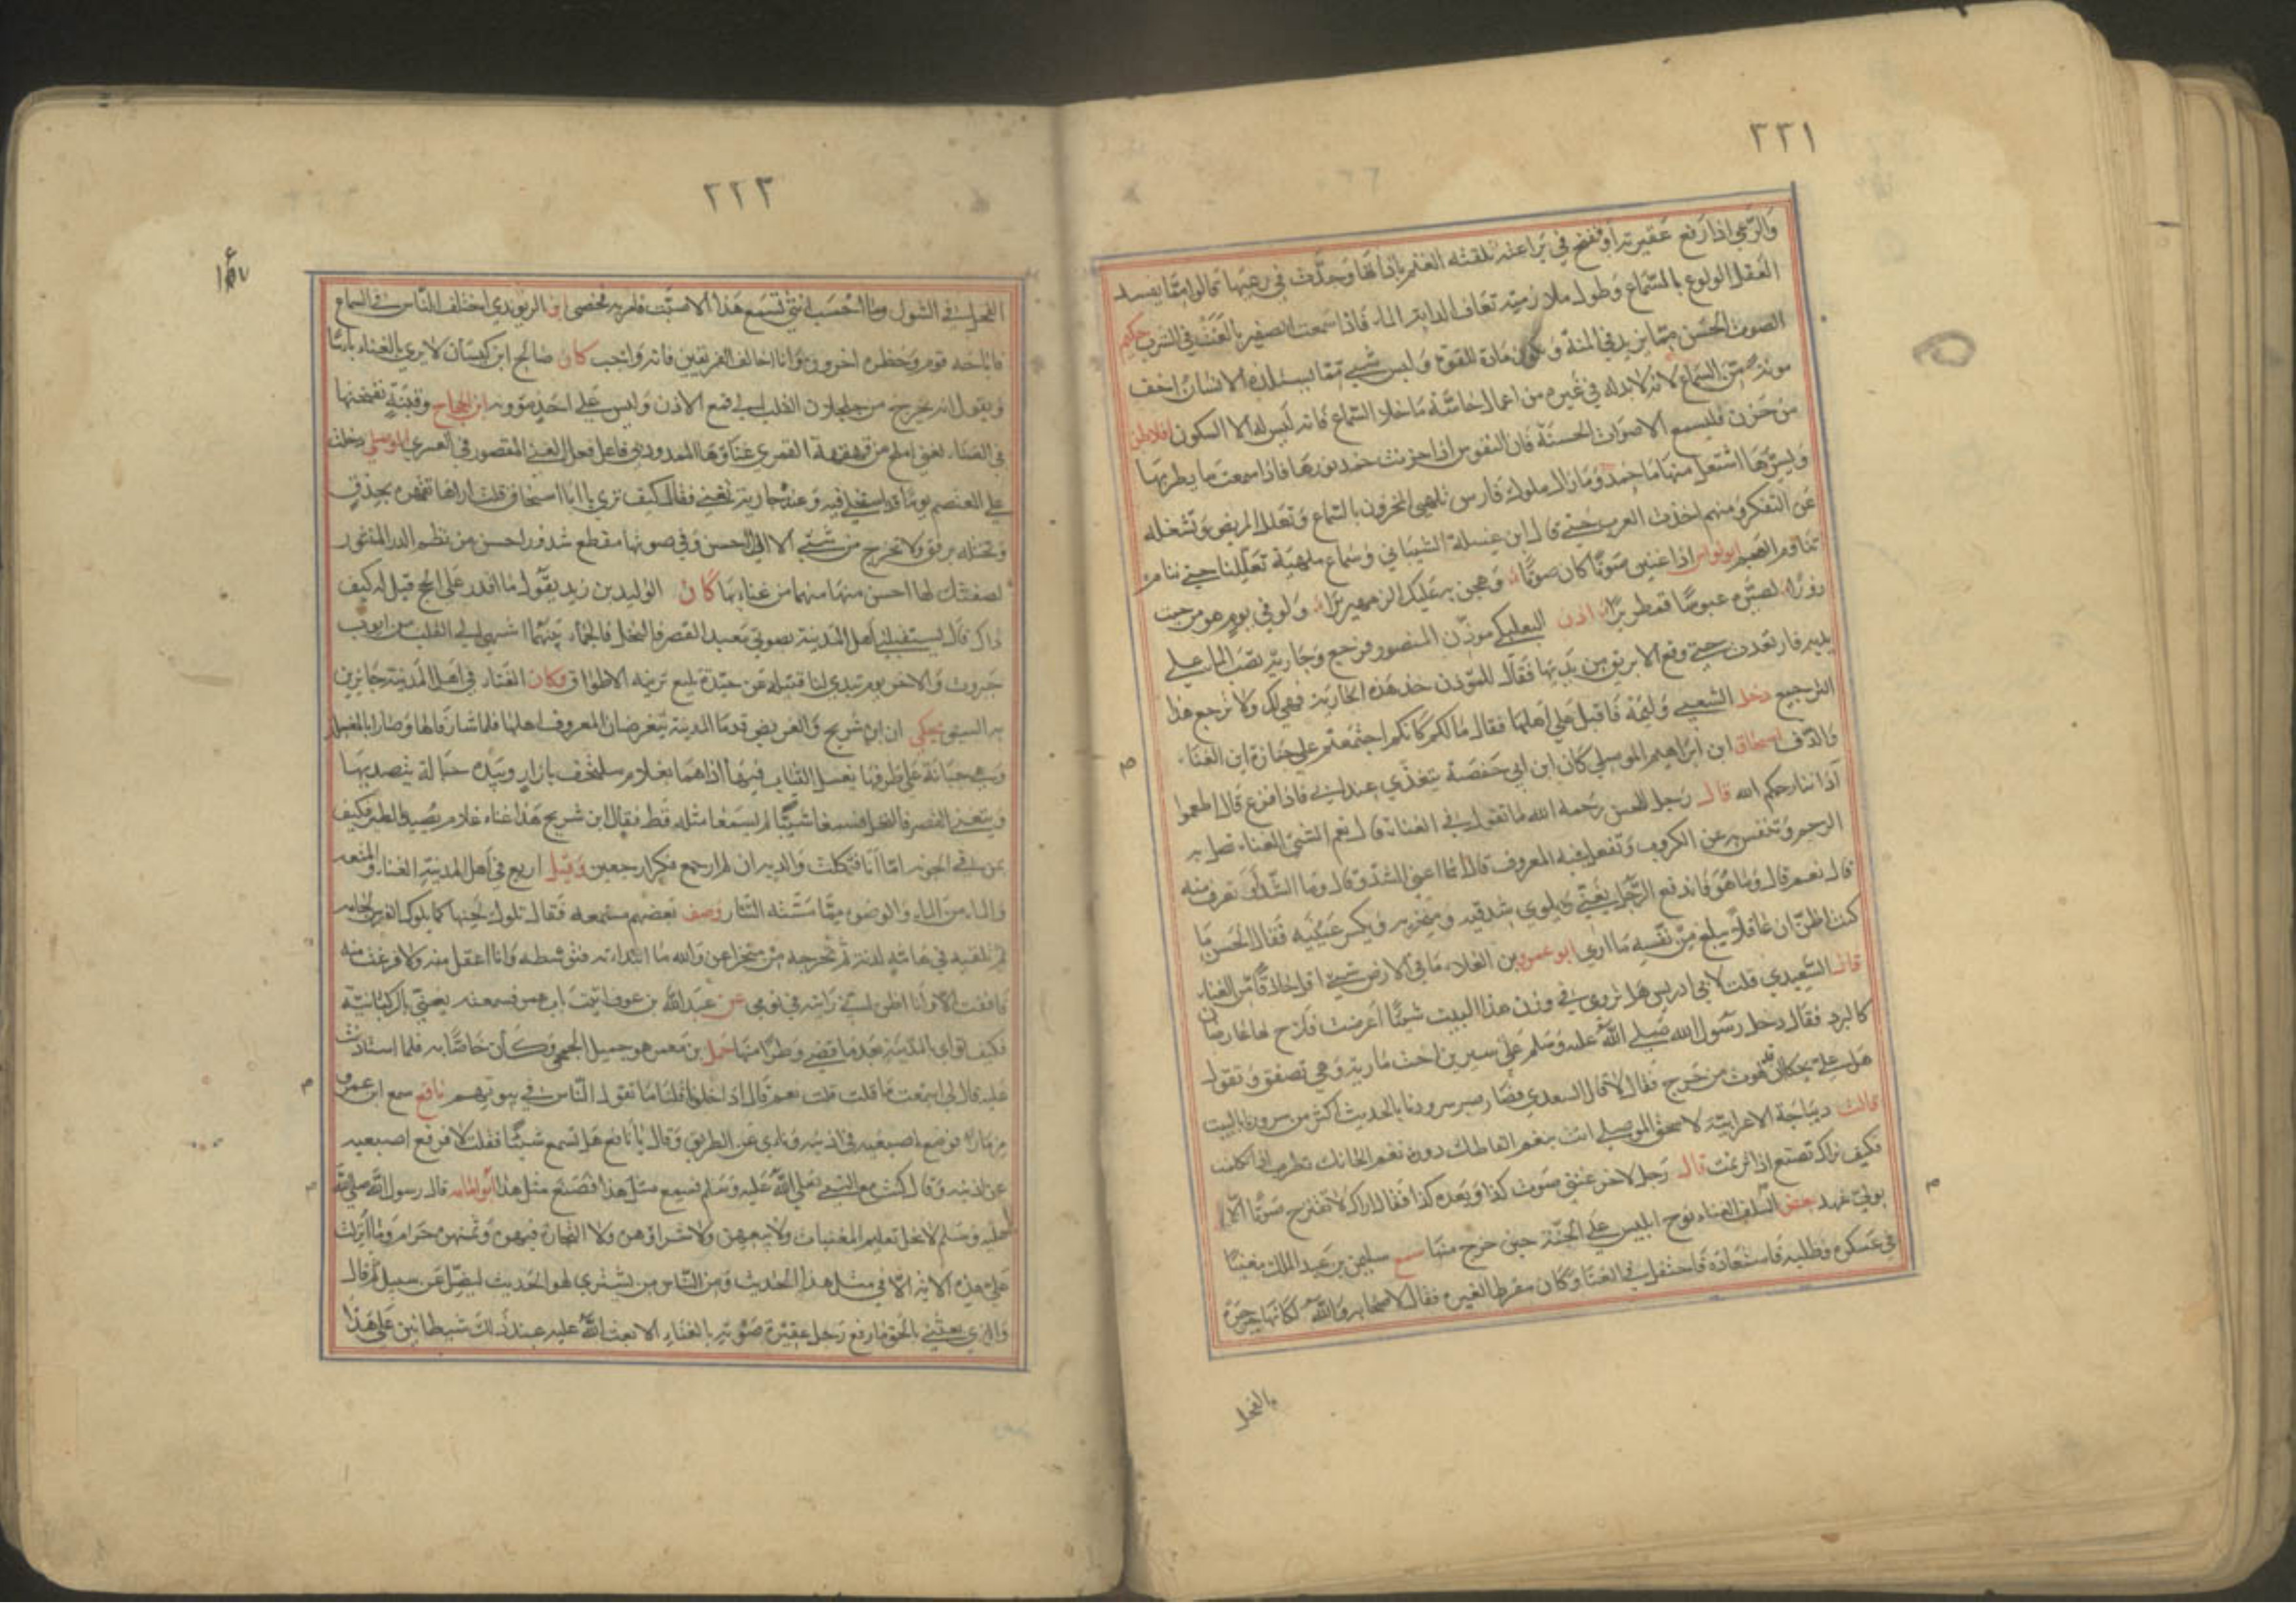 ٢٢١
والراعي اذا رفع عقيرته او نفخ في يراعته تلقته الغنم باذانها وجدت في رعيها قالوا مما يفسد
العقل الولوع بالسماع وطول ملازمته تعاف الدابة الماء فاذا سمعت الصفير بالغت في الشرب حكيم
الصوت الحسن مما يزيد في المنة و مادة للقوة وليس شيء مما يستلذه الانسان اخف
مونة من السماع لانه لابد له في غيره من اعمال حاسة ما خلا السماع فانه ليس له الا السكون افلاطن
من حزن فليسمع الاصوات الحسنة فان النفوس اذا حزنت خمد نورها فاذا سمعت ما يطربها
وليسرها اشتعل منها ما خمد وما زال ملوك فارس تلهي المحزون بالسماع وتعلل المريض وتشغله
عن التفكر ومنهم اخذت العرب حتى قال ابن غسلة الشيباني وسماع ملهية تعللنا حتى ننام
تناوم العجم ابو نواس اذا غنين صوتا كان صوتا وهجن به عليك الزمهريرا ولو في يوم هو مرحيت
زورا لصيره عبوسا قمطريرا اذن البعلبكي موذن المنصور فرجع وجارية تصب الماء على
يديه فارتعدت حتى وقع الابريق من يديها فقال للموذن خذ هذه الجارية فهي لك ولا ترجع هذا
الترجيع دخل الشعبي وليمة فاقبل على اهلها فقال مالكم كانكم اجتمعتم على جنازة اين الغناء
والدف اسحاق ابن ابراهيم الموصلي كان ابن ابي حفصة يتغذي عند ابي فاذا فرغ قال اطعموا
آذاننا رحمكم الله قال رجل للحسن رحمه الله ما تقول في الغناء قال نعم الشيء الغناء تصل به
الرحم وتنفس به عن الكروب وتفعل فيه المعروف قال انما اعني الشدو قال وما الشدو اتعرف منه
قال نعم قال وما هو فاندفع الرجل يغني ويلوي شدقيه ومنخريه ويكسر عينيه فقال الحسن ما
كنت اظن ان عاقلا يبلغ من نفسه ما ارى ابو عمرو بن العلاء ما في الارض شيء اقل خلافا من الغناء
قال السعيدي قلت لابي ادريس هل تروي في وزن هذا البيت شيئا اعرضت فلاح لها عارضان
كالبرد فقال دخل رسول الله صلى الله عليه وسلم على سيرين اخت مارية وهي تصفق وتقول
هل علي ويحكما ان لهوت من حرج فقال لا قال السعدي فصار سرورنا بالحديث اكثر من سرورنا بالبيت
قالت ديباجة الاعرابية لاسحق الموصلي انت بنغم الفاظك دون نغم الحانك تطرب اذا تكلمت
فكيف نراك تصنع اذا ترنمت قال رجل لاخر غنني صوت كذا وبعده كذا فقال اراك لا تقترح صوتا الا
بولي عهد بعض السلف الغناء نوح ابليس على الجنة حين خرج منها سمع سليمن بن عبد الملك مغنيا
في عسكره وطلبه فاستعاده فاحتفل في الغنا وكان مفرط الغيرة فقال لاصحابه والله لكانها جرجرة
الفحل
٢٢٣
الفحل في الشول وما احسب انثى تسمع هذا الا صبت فامر به فخصي ابن الريوندي اختلف الناس في السماع
فاباحه قوم وحظره اخرون وانا اخالف الفريقين فانه واجب كان صالح ابن كيسان لا يرى بالغناء باسا
ويقول انه يخرج من جلجلان القلب الى قمع الاذن وليس على احد مؤونة ابن الحجاج وقينة تفتنها
في الغناء تغني املح من قهقهة القمري غناؤها الممدود بي فاعل فعل الغنى المقصور في العسر الموصلي دخلت
على المعتصم يوما وعنده جارية تغنيه فقال كيف ترى يا ابا اسحاق قلت اراها تقهره بحذق
وتختله برفق ولا تخرج من شيء الا الى احسن وفي صوتها مقطع شذور احسن من نظم الدر المنثور
لصفتك لها احسن منها منها من غنايها كان الوليد بن يزيد يقول ما اقدر على الحج قيل له كيف
ذاك قال يستقبلني اهل المدينة بصوتي معبد القصر فالنخل فالجماء بينهما اشهى الى القلب من ابواب
جيرون والاخر يوم تبدي لنا قتيلة عن جيد تليع تزينه الاطواق وكان الغناء في اهل المدينة جائزين
به السبق حكي ان ابن شريح والغريض قدما المدينة يتعرضان لمعروف اهلها فلما شارفاها وصارا بالمغسلة
وهي جبانة على طرفها يغسل الثياب فيها اذا هما بغلام ملتحف بازار وبيده حبالة يتصيد بها
ويتغنى القصر فالنخل فسمعا شيئا لم يسمعا مثله قط فقال ابن شريح هذا غناء غلام يصيد الطير فكيف
بمن في الجونة اما انا فثكلت والديه ان لم ارجع فكرا راجعين وقيل اربع في اهل المدينة الغناء والمتعة
والماء من الماء والوضوء مما مسته النار وصف بعضهم مسمعه فقال تلوك لحنها كما يلوك الفرس لجامه
ثم تلقيه في هامة لدنة ثم تخرجه من منخر اغن والله ما ابتداته فتوسطه وانا اعقل منه ولا فرغت منه
فافقت الا وانا اظن اني رايته في نومي عن عبد الله بن عوف اتيت باب عمر فسمعته يغني بالركبانية
فكيف ثواي بالمدينة بعد ما قضى وطرا منها جميل بن معمر هو جميل الجمحي وكان خاصا به فلما استاذنت
عليه قال لي اسمعت ما قلت قلت نعم قال اذا خلونا قلنا ما تقول الناس في بيوتهم نافع سمع ابن عمر
مزمارا فوضع اصبعيه في اذنيه وناى عن الطريق وقال يا نافع هل تسمع شيئا فقلت لا فرفع اصبعيه
عن اذنيه وقال كنت مع النبي صلى الله عليه وسلم فسمع مثل هذا فصنع مثل هذا ابو امامة قال رسول الله صلى الله
عليه وسلم لا يحل تعليم المغنيات ولا بيعهن ولا شراؤهن ولا التجارة فيهن وثمنهن حرام وما انزلت
علي هذه الاية الا في مثل هذا الحديث ومن الناس من يشتري لهو الحديث ليضل عن سبيل ثم قال
والذي بعثني بالحق ما رفع رجل عقيرة صوته بالغناء الا بعث الله عليه عند ذلك شيطانين على هذا